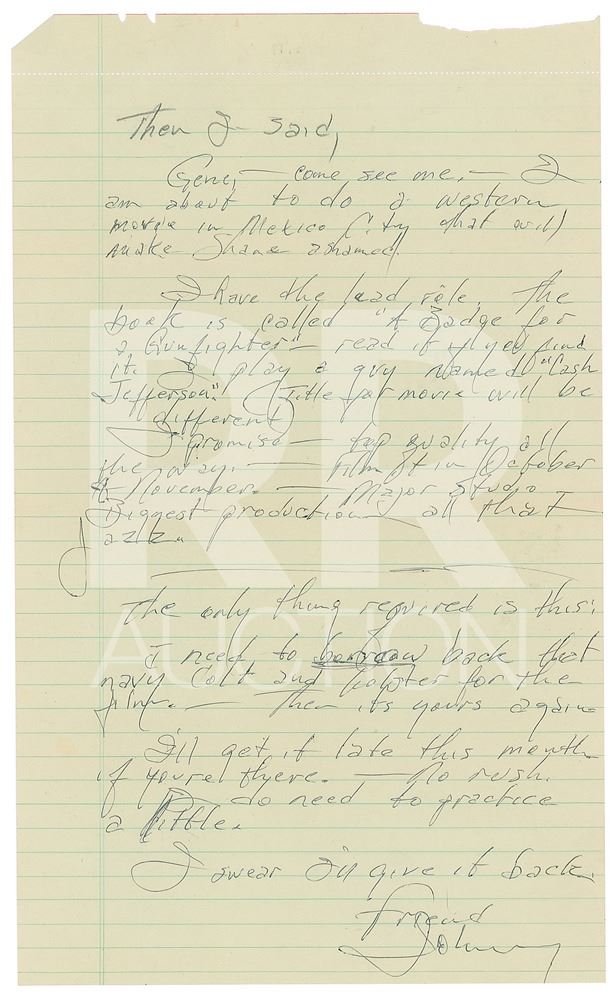 Then I said,
Gene, — come see me, — I
am about to do a western
movie in Mexico City that will
make Shane ashamed.
I have the lead role. The
book is called "A Badge for
a Gunfighter" — read it if you find
it. I play a guy named "Cash
Jefferson." (Title for movie will be
different)
I promise — top quality all
the way. — Film it in October
& November. — Major Studio
Biggest production — all that
Jazz.
The only thing required is this:
I need to borrow back that
navy Colt and holster for the
film. — Then its yours again.
I'll get it late this month
if you're there. — No rush.
I do need to practice
a little.
I swear I'll give it back.
Friend
Johnny
RR
AUCTION